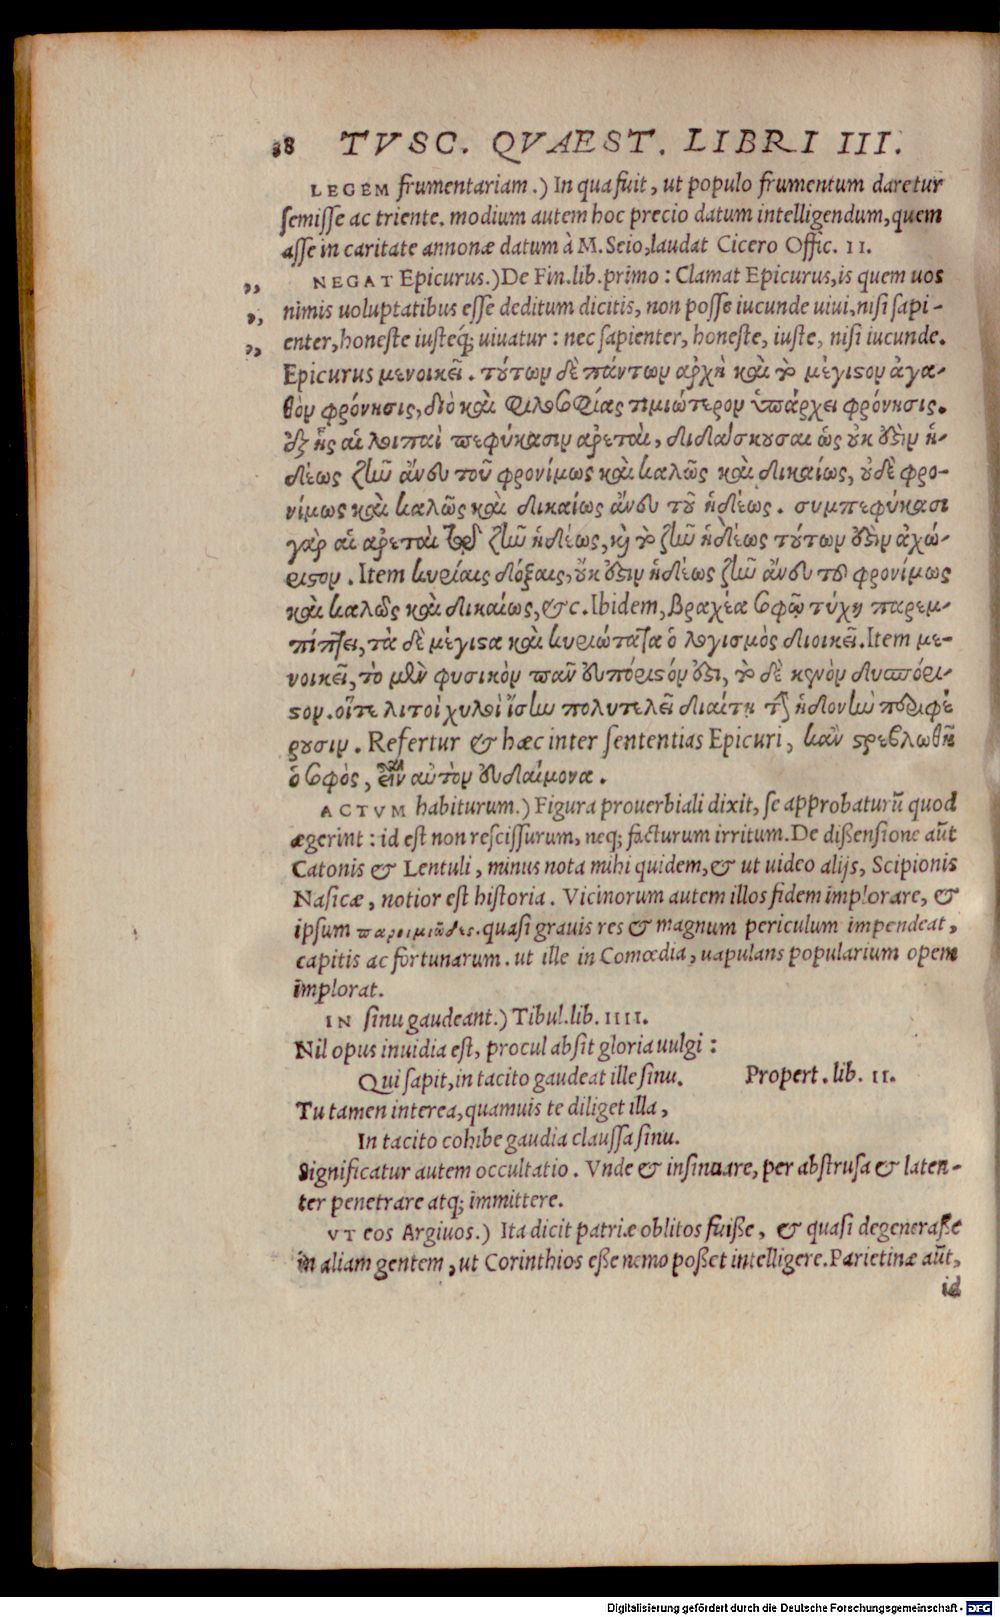 38 TVSC. QVAEST. LIBRI III.
LEGEM frumentariam.) In qua fuit, ut populo frumentum daretur
semisse ac triente. modium autem hoc precio datum intelligendum, quem
asse in caritate annonæ datum à M. Seio, laudat Cicero Offic. II.
NEGAT Epicurus.) De Fin. lib. primo: Clamat Epicurus, is quem uos
nimis uoluptatibus esse deditum dicitis, non posse iucunde uiui, nisi sapi-
enter, honeste iusteq́; uiuatur: nec sapienter, honeste, iuste, nisi iucunde.
Epicurus μενοικεῖ. τούτων δὲ πάντων ἀρχὴ καὶ τὸ μέγιστον ἀγα-
θὸν φρόνησις, διὸ καὶ φιλοσοφίας τιμιώτερον ὑπάρχει φρόνησις.
ἐξ ἧς αἱ λοιπαὶ πεφύκασιν ἀρεταὶ, διδάσκουσαι ὡς οὐκ ἔστιν ἡ-
δέως ζῆν ἄνευ τοῦ φρονίμως καὶ καλῶς καὶ δικαίως, οὐδὲ φρο-
νίμως καὶ καλῶς καὶ δικαίως ἄνευ τοῦ ἡδέως. συμπεφύκασι
γὰρ αἱ ἀρεταὶ τῷ ζῆν ἡδέως, κὶ τὸ ζῆν ἡδέως τούτων ἔστιν ἀχώ-
ριστον. Item κυρίαις δόξαις, οὐκ ἔστιν ἡδέως ζῆν ἄνευ τοῦ φρονίμως
καὶ καλῶς καὶ δικαίως, &c. Ibidem, βραχέα σοφῷ τύχη παρεμ-
πίπτει, τὰ δὲ μέγιστα καὶ κυριώτατα ὁ λογισμὸς διοικεῖ. Item με-
νοικεῖ, τὸ μὲν φυσικὸν πᾶν εὐπόριστόν ἐστι, τὸ δὲ κενὸν δυσπόρι-
στον. οἵ τε λιτοὶ χυλοὶ ἴσην πολυτελεῖ διαίτῃ τὴν ἡδονὴν περιφέ
ρουσιν. Refertur & hæc inter sententias Epicuri, κἂν στρεβλωθῇ
ὁ σοφὸς, εἶναι αὐτὸν εὐδαίμονα.
ACTVM habiturum.) Figura prouerbiali dixit, se approbaturū quod
ægerint: id est non rescissurum, neq; facturum irritum. De dißensione aūt
Catonis & Lentuli, minus nota mihi quidem, & ut uideo alijs, Scipionis
Nasicæ, notior est historia. Vicinorum autem illos fidem implorare, &
ipsum παροιμιῶδες. quasi grauis res & magnum periculum impendeat,
capitis ac fortunarum. ut ille in Comœdia, uapulans popularium opem
implorat.
IN sinu gaudeant.) Tibul. lib. IIII.
Nil opus inuidia est, procul absit gloria uulgi:
Qui sapit, in tacito gaudeat ille sinu. Propert. lib. II.
Tu tamen interea, quamuis te diliget illa,
In tacito cohibe gaudia claussa sinu.
Significatur autem occultatio. Vnde & insinuare, per abstrusa & laten-
ter penetrare atq; immittere.
VT eos Argiuos.) Ita dicit patriæ oblitos fuiße, & quasi degeneraße
in aliam gentem, ut Corinthios eße nemo poßet intelligere. Parietinæ aūt,
id
Digitalisierung gefördert durch die Deutsche Forschungsgemeinschaft - DFG